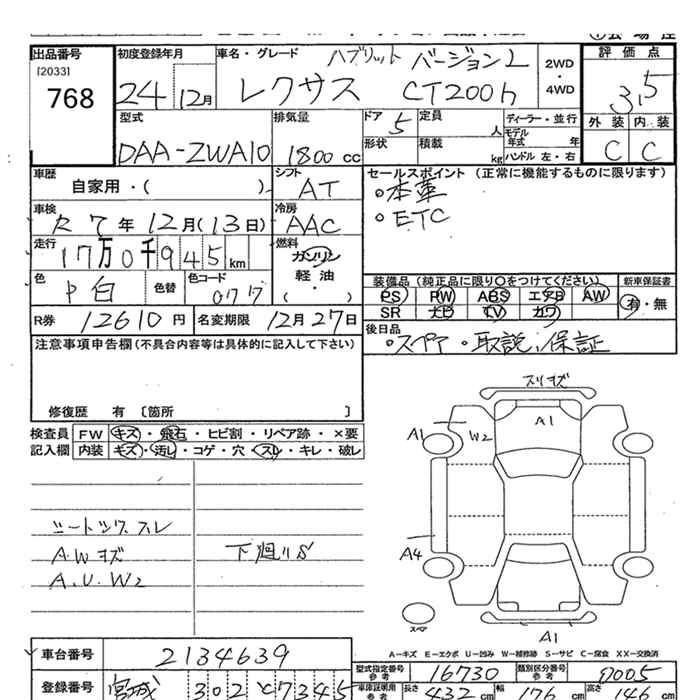 出品番号 初度登録年月 車名・グレード ハブリット バージョンL 評価点
[2033] 2WD
768 24 12月 レクサス CT200h ・ 3.5
4WD
型式 排気量 ドア 5 定員 人 ディーラー・並行 外装 内装
DAA-ZWA10 1800 cc 形状 積載 kg モデル年式 年 C C
ハンドル 左・右
車歴 自家用・( ) シフト AT セールスポイント (正常に機能するものに限ります)
。本革
車検 R7年 12月(13日) 冷房 AAC 。ETC
走行 17万0千945km 燃料 ガソリン
軽油
・
( )
色 P白 色替 色コード 装備品(純正品に限り○をつけてください) 新車保証書
PS PW ABS エアB AW 有・無
SR ナビ TV カワ
R券 12610円 名変期限 12月27日 後日品
。スペア・取説、保証
注意事項申告欄(不具合内容等は具体的に記入して下さい)
修復歴 有 〔箇所 〕
検査員 FW キズ・飛石・ヒビ割・リペア跡・×要
記入欄 内装 キズ・汚れ・コゲ・穴・スレ・キレ・破レ
スリキズ
A1
A1 W2
シートシワスレ
A.Wキズ 下廻りS
A.U.W2
A4
スペア
A1
A−キズ E−エクボ U−凹み W−補修跡 S−サビ C−腐食 XX−交換済
車台番号 2134639
型式指定番号 参考 16730 類別区分番号 参考 0005
登録番号 宮城 302 と 7345 車庫証明用 参考 長さ 432 cm 幅 176 cm 高さ 146 cm